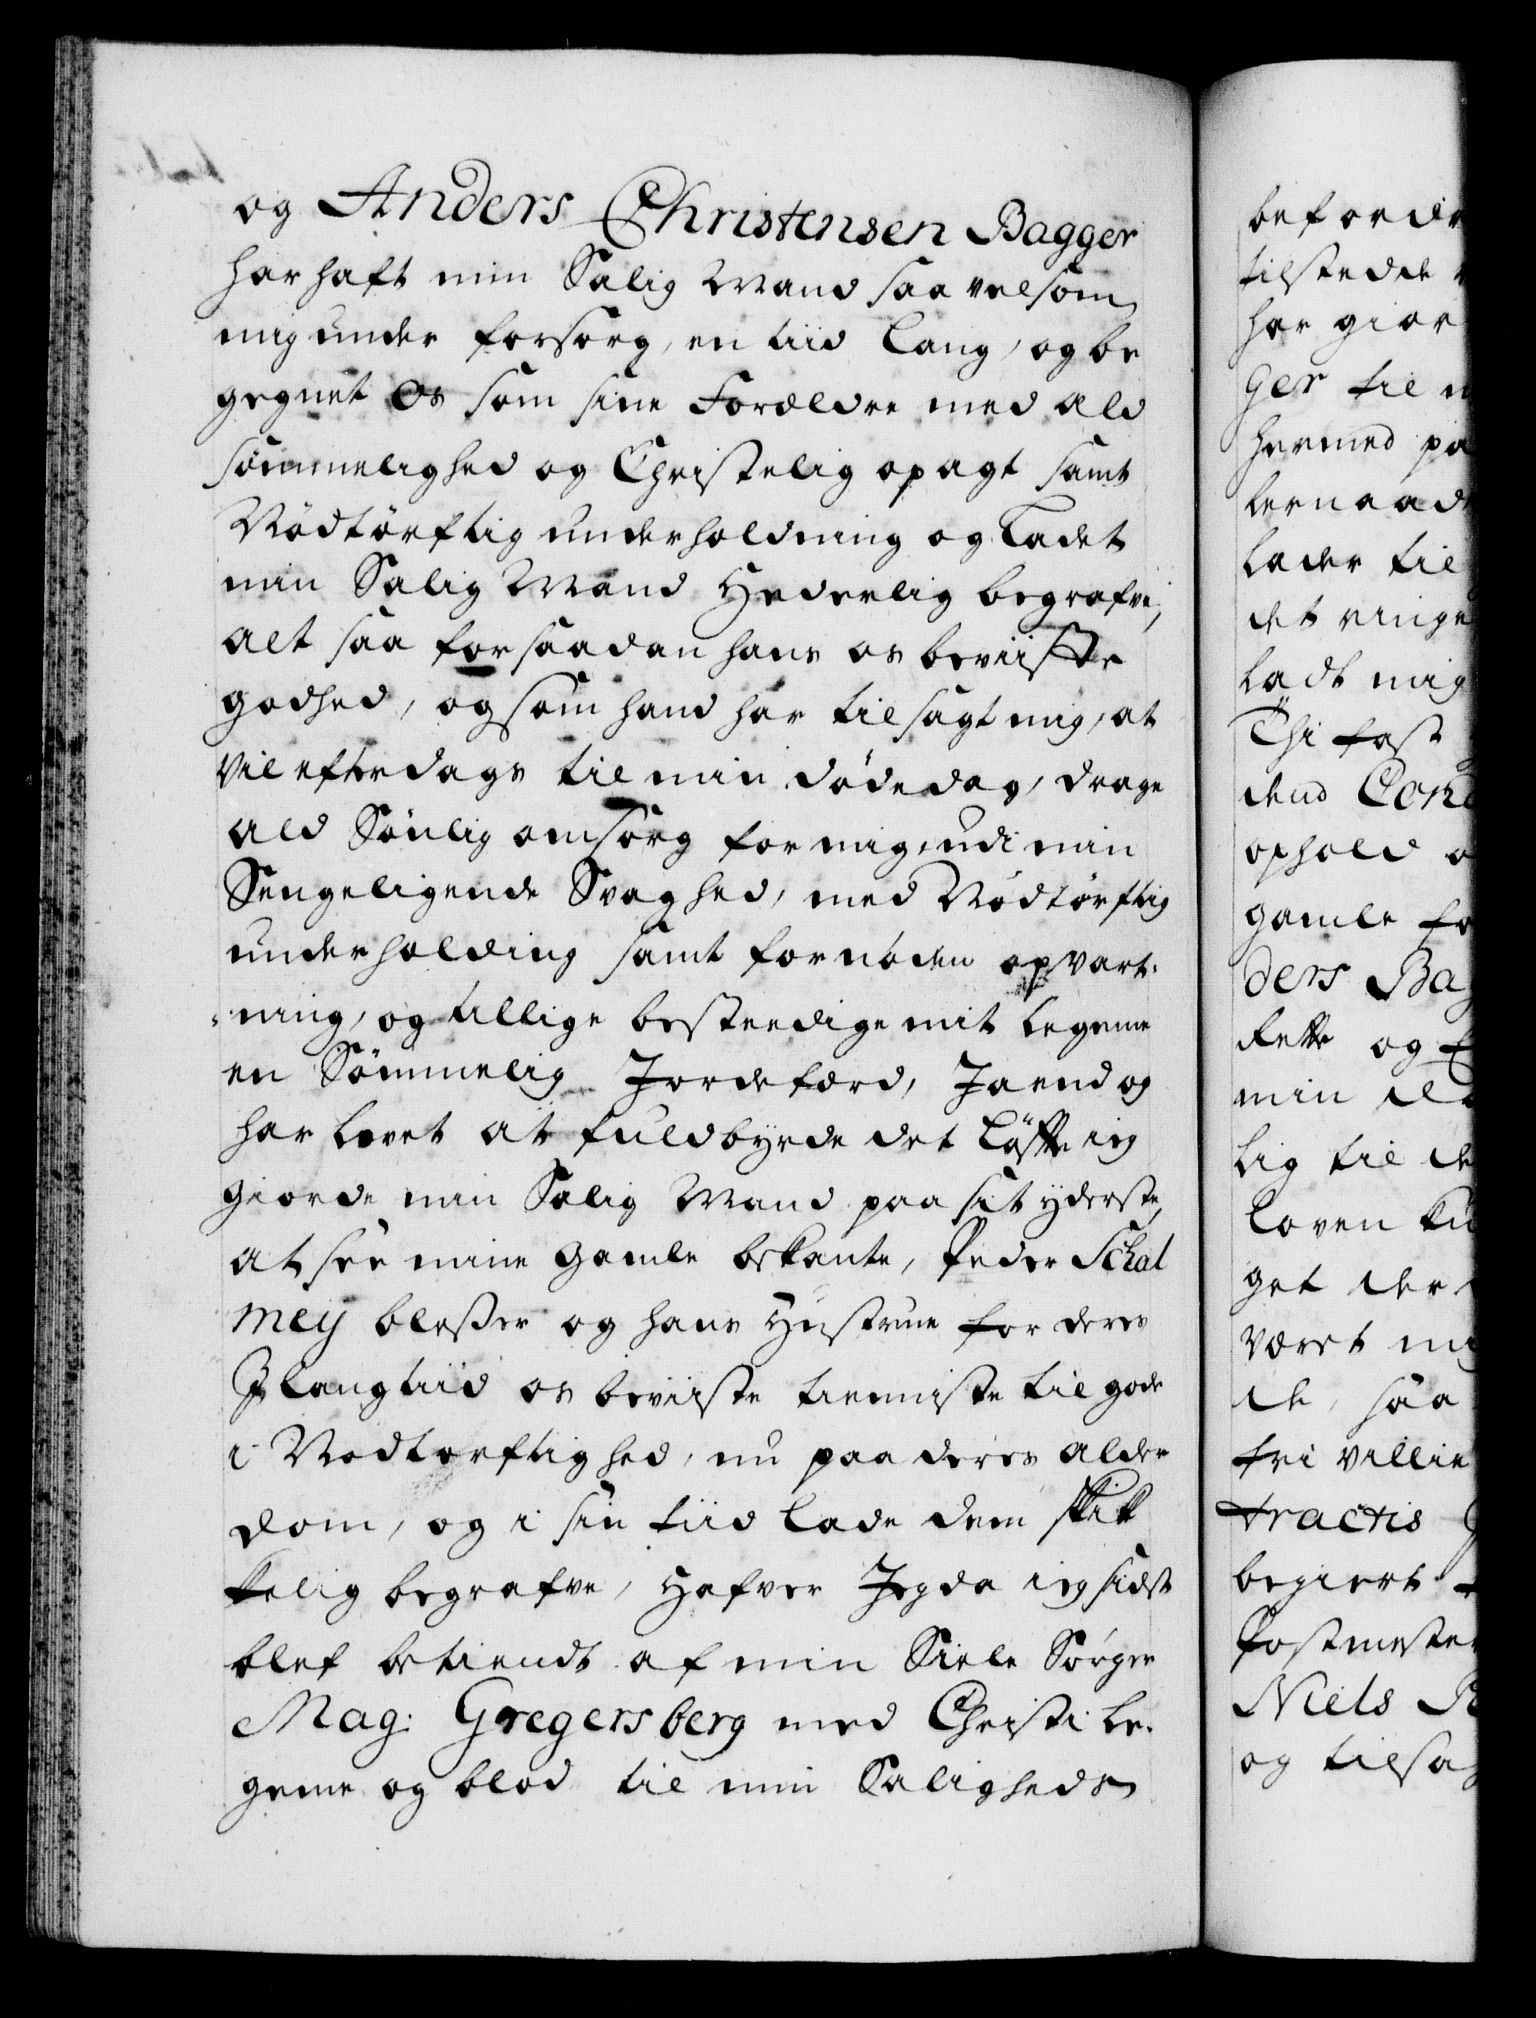 og Anders Christensen Bagger
har haft min Salig Mand saa velsom
mig under forsorg, en tiid lang, og be
gegnet Os som sine Forældre med ald
sømmelighed og Christelig opagt samt
Nödtørftig underholdning og Ladet
min Salig Mand Hæderlig begrafve,
alt saa for saadan hans os beviiste
godhed, og som hand har tilsagt mig, at
vil efterdags til min dödedag, drage
ald Sönlig omsorg for mig, udi min
Sengeligende Svaghed, med Nödtørftig
underholding samt fornöden opvart-
ning, og tillige bestædige mit legeme
en Sömmelig Jordefærd, Ja end og
har lovet at fuldbyrde det Löffte ieg
giorde min Salig Mand paa sit yderste,
at see mine gamle bekante, Peder Schal
mey blæßer og hans Hustrue for deres
J langtiid os beviiste tienniste til gode
i Nödtørftighed, nu paa deres alder
dom, og i sin tiid lade dem skik
kelig begrafve, Hafver Jeg da ieg sidst
blef betiendt af min Siele Sörger
Mag: Gregersberg med Christi Le-
geme og blod til min Saligheds
beford
tilstedde
har gior
ger til
hermed pa
lader til
det ringe
ladt mig
Thi fast
dend Con
ophold
gamle fo
ders Ba
Rette og
min
lig til de
Loven
get der
været
de, saa
fri villie
tractis
begiert
Postmester
Niels
og tilsa